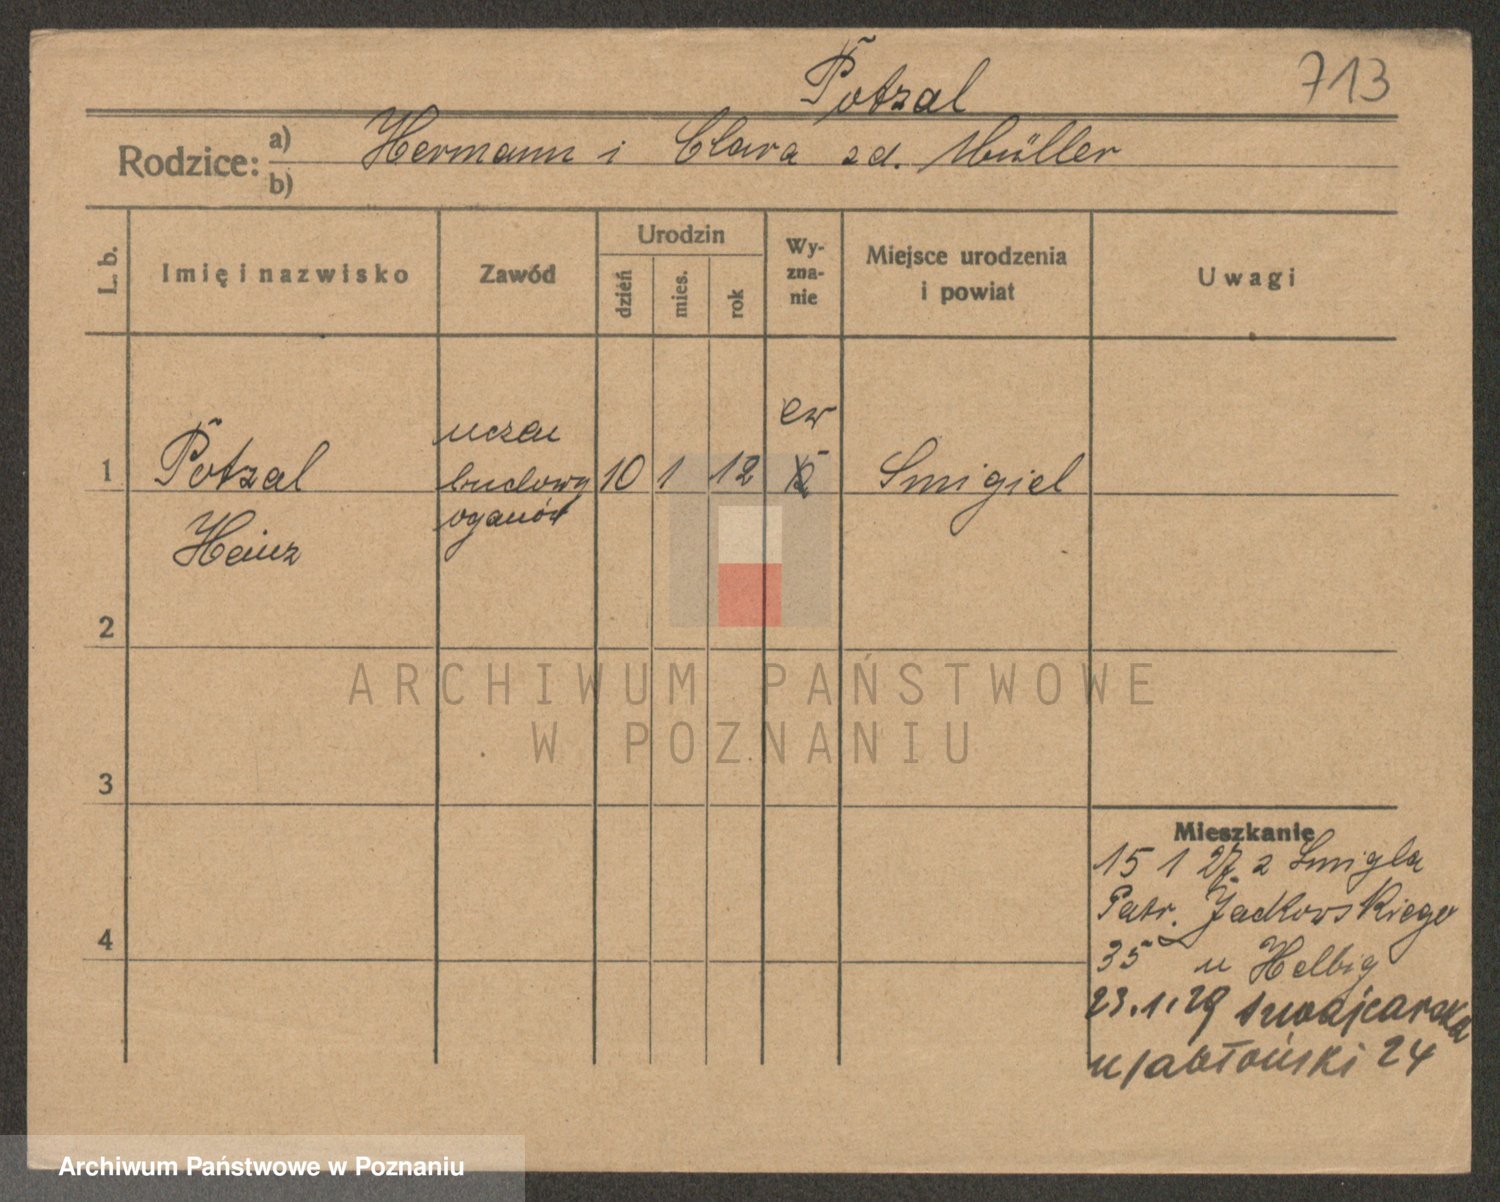 Potzal 713
Rodzice: a) Hermann i Clara zd. Müller
b)
L. b. Imię i nazwisko Zawód Urodzin dzień mies. rok Wy-zna-nie Miejsce urodzenia i powiat Uwagi
ew
uczeń
1 Potzal budowy 10 1 12 Smigiel
oganów
Heinz
2
ARCHIWUM PAŃSTWOWE
W POZNANIU
3
Mieszkanie
15 1 27 z Smigla
Patr. Jackowskiego
4
35 u Helbig
23.1.29 szwajcarska
u Jabłoński 24
Archiwum Państwowe w Poznaniu